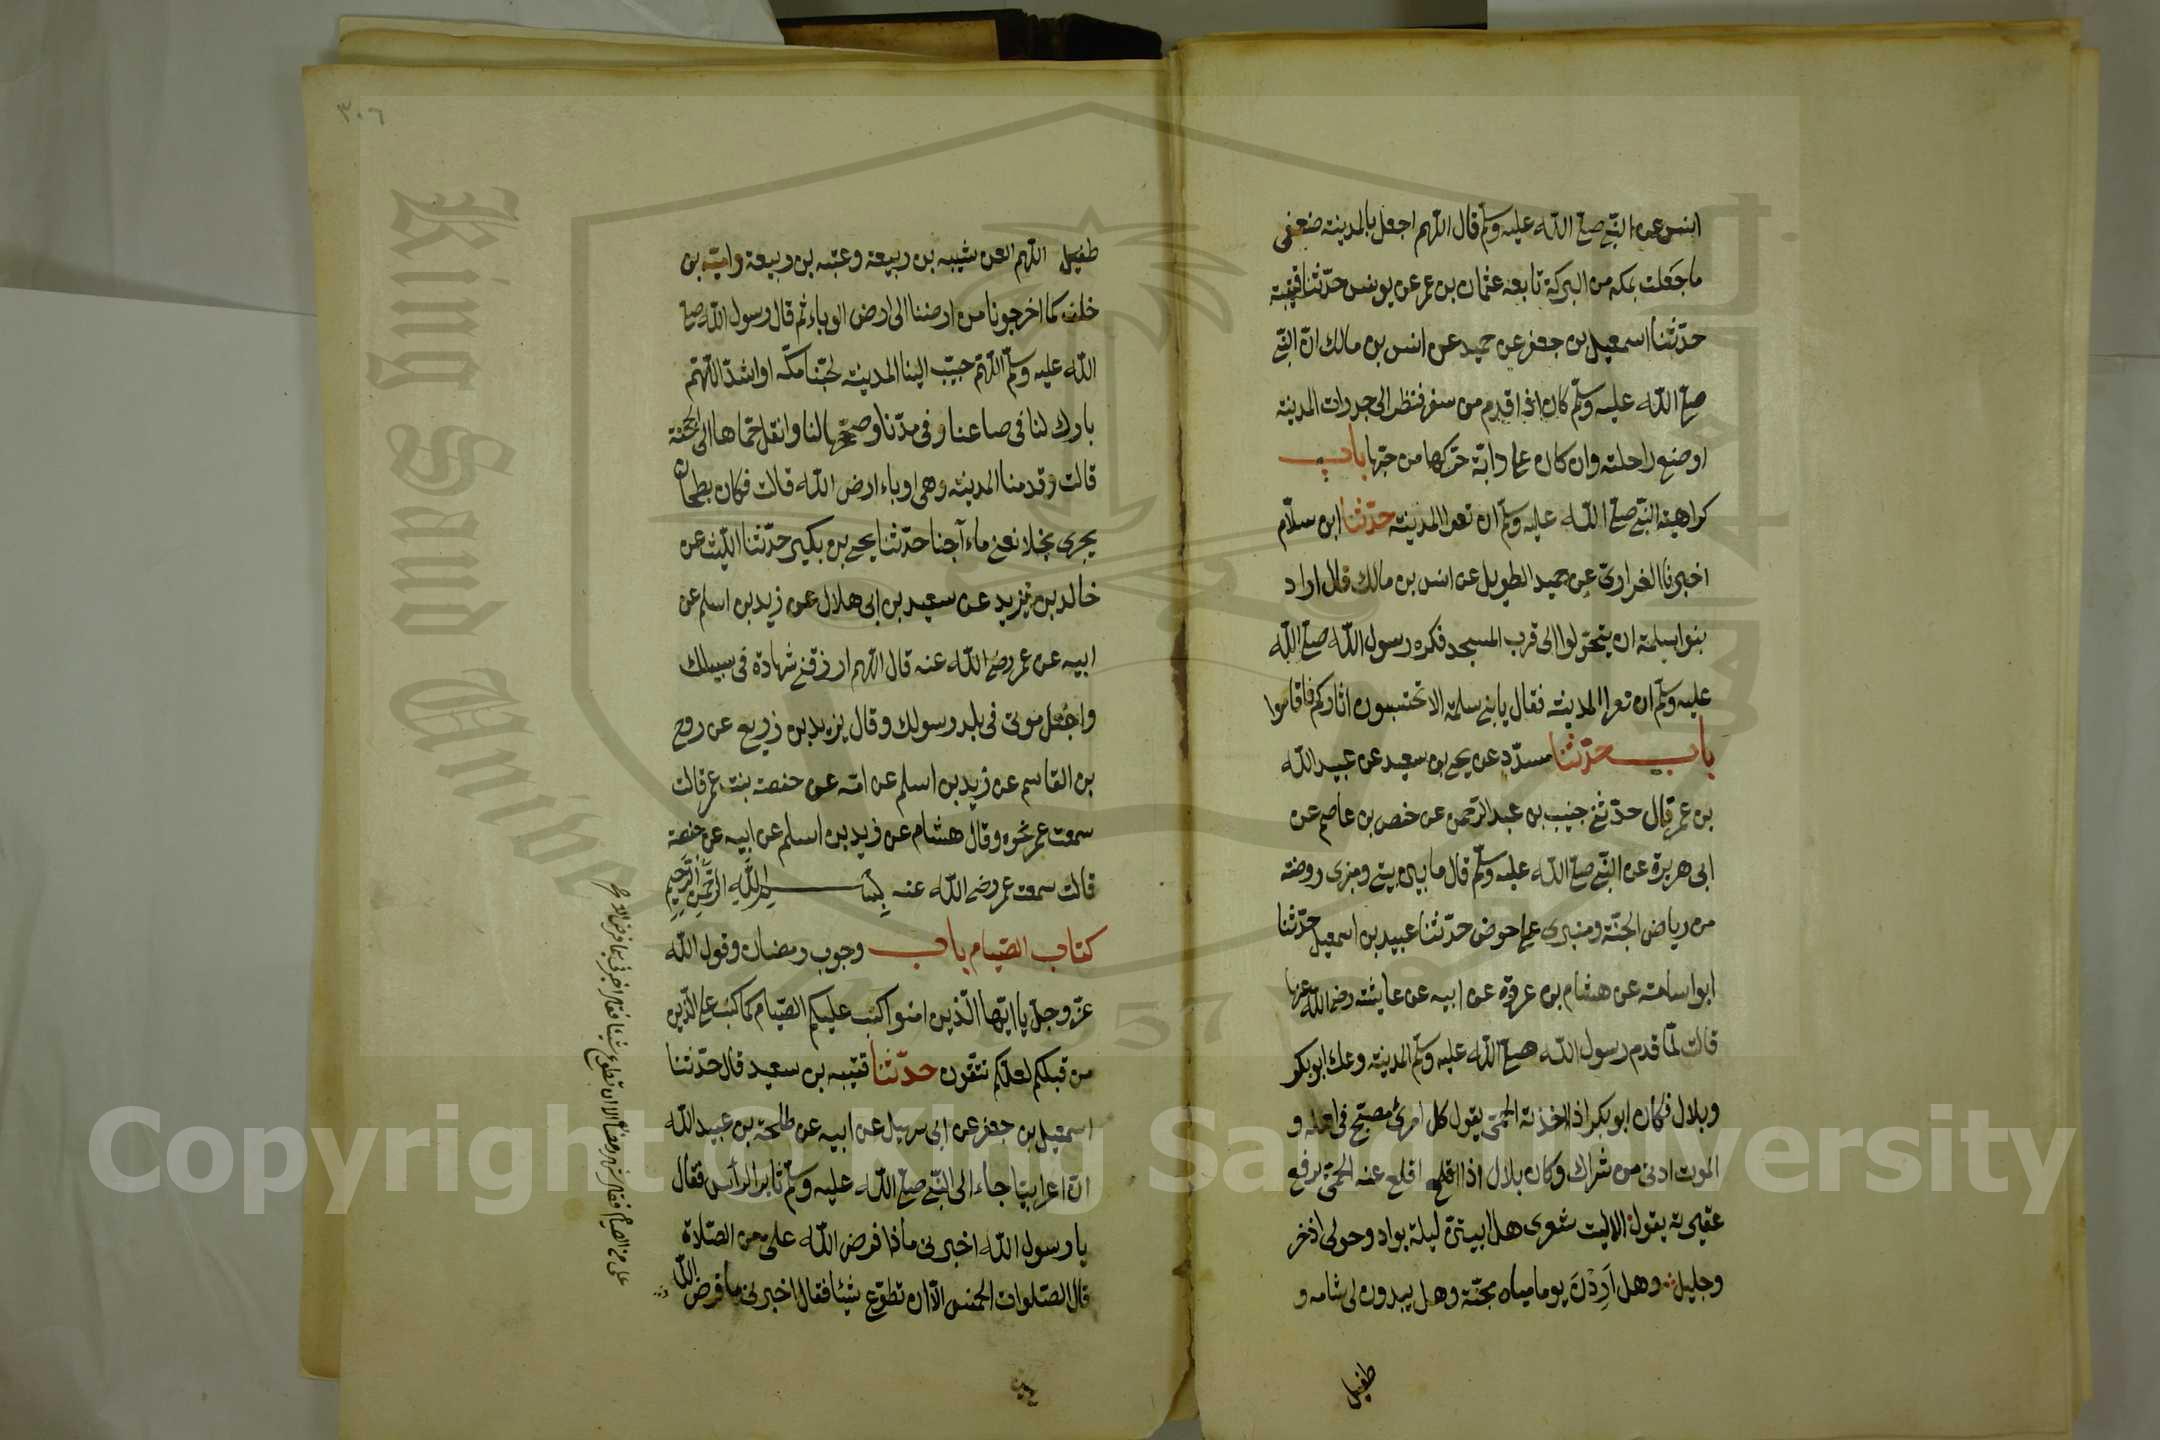 انس عن النبي صلى الله عليه وسلم قال اللهم اجعل بالمدينة ضعفي
ما جعلت بمكة من البركة تابعه عثمان بن عمر عن يونس حدثنا قتيبة
حدثنا اسمعيل بن جعفر عن حميد عن انس بن مالك ان النبي
صلى الله عليه وسلم كان اذا قدم من سفر فنظر الى جدرات المدينة
اوضع راحلته وان كان على دابة حركها من حبها باب
كراهية النبي صلى الله عليه وسلم ان تعرا المدينة حدثنا ابن سلام
اخبرنا الفزاري عن حميد الطويل عن انس بن مالك قال اراد
بنوا سلمة ان يتحولوا الى قرب المسجد فكره رسول الله صلى الله
عليه وسلم ان تعرا المدينة فقال يا بني سلمة الا تحتسبون اثاركم فاقاموا
باب حدثنا مسدد عن يحيى بن سعيد عن عبيد الله
بن عمر قال حدثني خبيب بن عبد الرحمن عن حفص بن عاصم عن
ابي هريرة عن النبي صلى الله عليه وسلم قال ما بين بيتي ومنبري روضة
من رياض الجنة ومنبري على حوضي حدثنا عبيد بن اسمعيل حدثنا
ابو اسامة عن هشام بن عروة عن ابيه عن عايشة رضي الله عنها
قالت لما قدم رسول الله صلى الله عليه وسلم المدينة وعك ابو بكر
وبلال فكان ابو بكر اذا اخذته الحمى يقول كل امرئ مصبح في اهله و
الموت ادنى من شراك وكان بلال اذا اقلع اقلع عنه الحمى يرفع
عقيرته يقول الا ليت شعري هل ابيتن ليلة بواد وحولي اذخر
وجليل وهل اردن يوما مياه مجنة وهل يبدون لي شامه و
طفيل
٣٠٦
طفيل اللهم العن شيبة بن ربيعة وعتبة بن ربيعة وامية بن
خلف كما اخرجونا من ارضنا الى ارض الوباء ثم قال رسول الله صلى
الله عليه وسلم اللهم حبب الينا المدينة كحبنا مكة او اشد اللهم
بارك لنا في صاعنا وفي مدنا وصححها لنا وانقل حماها الى الجحفة
قالت وقدمنا المدينة وهي اوباء ارض الله قالت فكان بطحان
يجري نجلا تعني ماء آجنا حدثنا يحيى بن بكير حدثنا الليث عن
خالد بن يزيد عن سعيد بن ابي هلال عن زيد بن اسلم عن
ابيه عن عمر رضي الله عنه قال اللهم ارزقني شهادة في سبيلك
واجعل موتي في بلد رسولك وقال يزيد بن زريع عن روح
بن القاسم عن زيد بن اسلم عن امه عن حفصة بنت عمر قالت
سمعت عمر نحوه وقال هشام عن زيد بن اسلم عن ابيه عن حفصة
قالت سمعت عمر رضي الله عنه بسم الله الرحمن الرحيم
كتاب الصيام باب وجوب رمضان وقول الله
عز وجل يا ايها الذين امنوا كتب عليكم الصيام كما كتب على الذين
من قبلكم لعلكم تتقون حدثنا قتيبة بن سعيد قال حدثنا
اسمعيل بن جعفر عن ابي سهيل عن ابيه عن طلحة بن عبيد الله
ان اعرابيا جاء الى النبي صلى الله عليه وسلم ثاير الرأس فقال
يا رسول الله اخبرني ماذا فرض الله علي من الصلاة
قال الصلوات الخمس الا ان تطوع شيئا فقال اخبرني ما فرض الله
علي من الصيام فقال شهر رمضان الا ان تطوع شيئا فقال اخبرني بما فرض الله
King Saud Unive
1957
Copyright © King Saud University